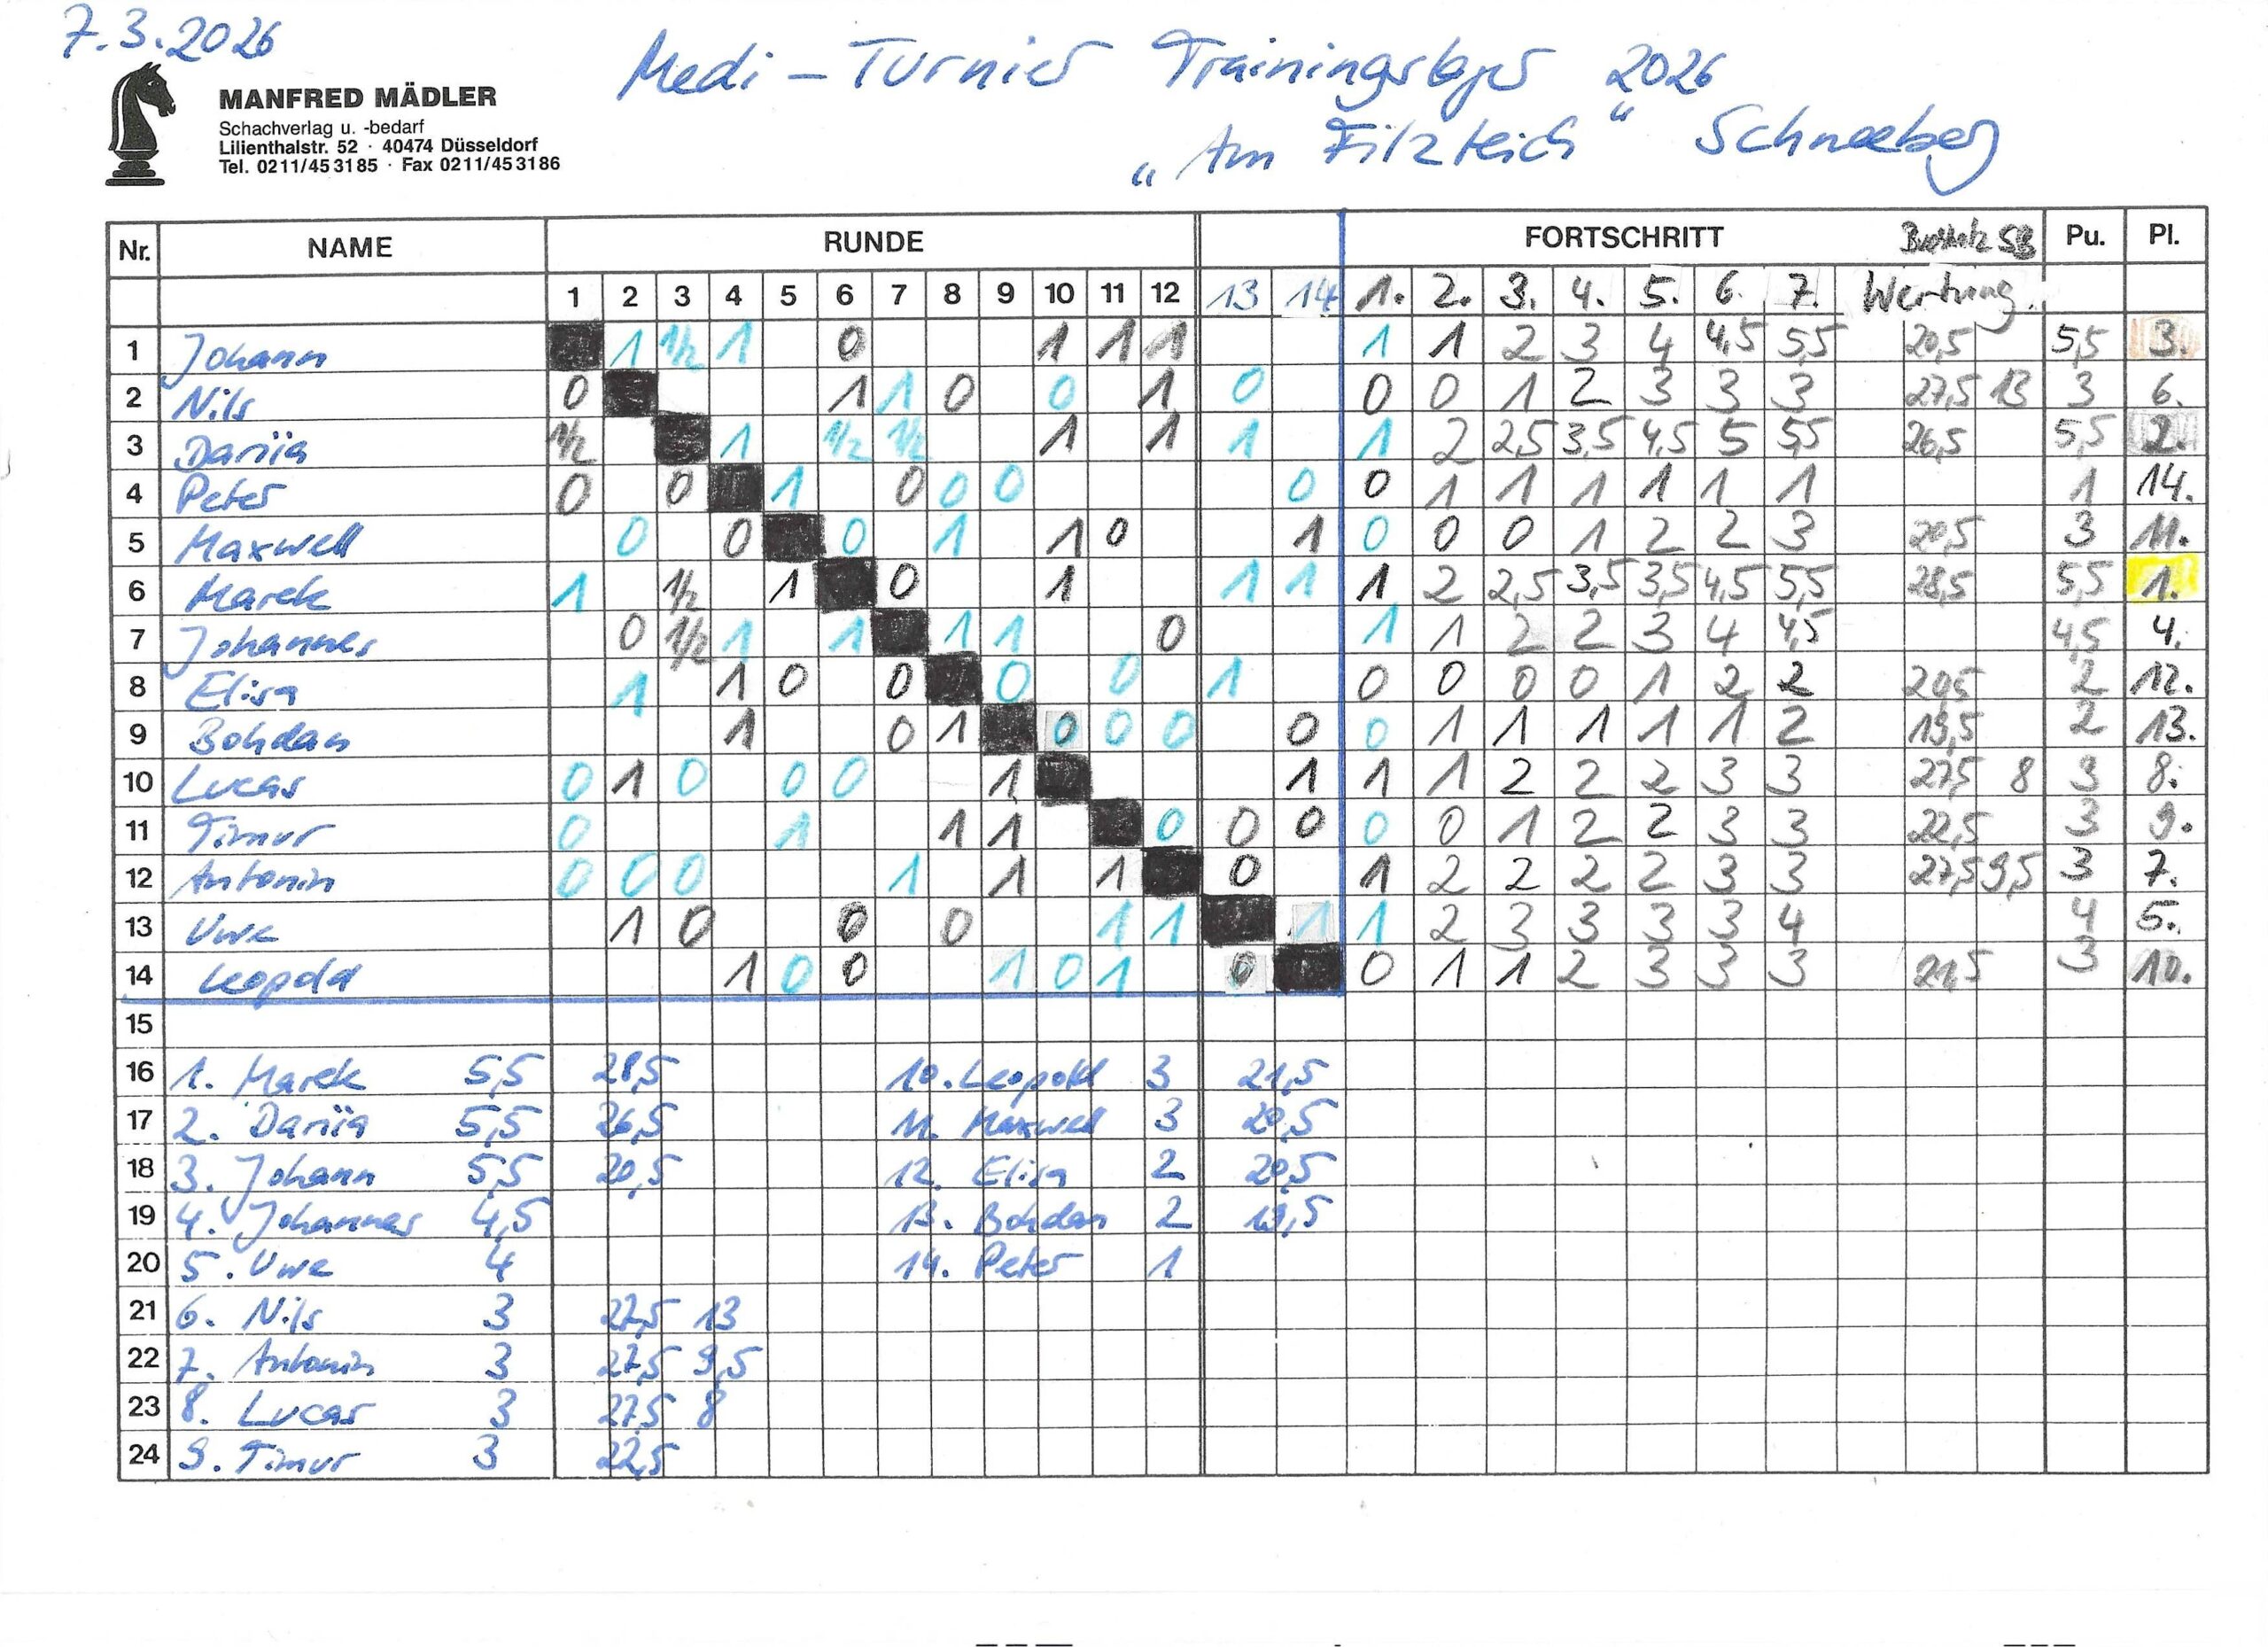 7.3.2026
Medi-Turnier Trainingslager 2026
„Am Filzteich" Schneeberg
MANFRED MÄDLER
Schachverlag u. -bedarf
Lilienthalstr. 52 · 40474 Düsseldorf
Tel. 0211/453185 · Fax 0211/453186
Nr. NAME RUNDE FORTSCHRITT Buchholz SB Pu. Pl.
1 2 3 4 5 6 7 8 9 10 11 12 13 14 1. 2. 3. 4. 5. 6. 7. Wertung
1 Johann 1 1/2 1 0 1 1 1 1 1 2 3 4 4,5 5,5 20,5 5,5 3.
2 Nils 0 1 1 0 0 1 0 0 0 1 2 3 3 3 27,5 13 3 6.
3 Dariia 1/2 1 1/2 1/2 1 1 1 1 2 2,5 3,5 4,5 5 5,5 26,5 5,5 2.
4 Peter 0 0 1 0 0 0 0 0 1 1 1 1 1 1 1 14.
5 Maxwell 0 0 0 1 1 0 1 0 0 0 1 2 2 3 20,5 3 11.
6 Marek 1 1/2 1 0 1 1 1 1 2 2,5 3,5 3,5 4,5 5,5 28,5 5,5 1.
7 Johannes 0 1/2 1 1 1 1 0 1 1 2 2 3 4 4,5 4,5 4.
8 Elisa 1 1 0 0 0 0 1 0 0 0 0 1 2 2 20,5 2 12.
9 Bohdan 1 0 1 0 0 0 0 0 1 1 1 1 1 2 19,5 2 13.
10 Lucas 0 1 0 0 0 1 1 1 1 2 2 2 3 3 27,5 8 3 8.
11 Timur 0 1 1 1 0 0 0 0 0 1 2 2 3 3 22,5 3 9.
12 Antonin 0 0 0 1 1 1 0 1 2 2 2 2 3 3 27,5 9,5 3 7.
13 Uwe 1 0 0 0 1 1 1 1 2 3 3 3 3 4 4 5.
14 Leopold 1 0 0 1 0 1 0 0 1 1 2 3 3 3 21,5 3 10.
15
16 1. Marek 5,5 28,5 10. Leopold 3 21,5
17 2. Dariia 5,5 26,5 11. Maxwell 3 20,5
18 3. Johann 5,5 20,5 12. Elisa 2 20,5
19 4. Johannes 4,5 13. Bohdan 2 19,5
20 5. Uwe 4 14. Peter 1
21 6. Nils 3 27,5 13
22 7. Antonin 3 27,5 9,5
23 8. Lucas 3 27,5 8
24 9. Timur 3 22,5